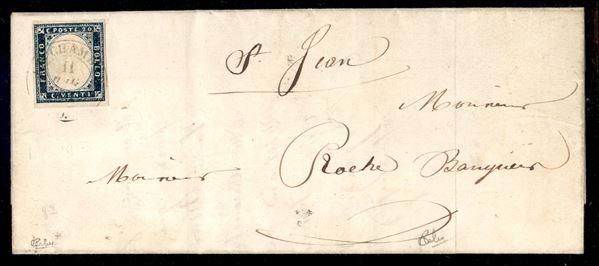 C. POSTE 20
FRANCO
BOLLO
C. VENTI
11
St. Jean
Monsieur
Monsieur Roche Banquier